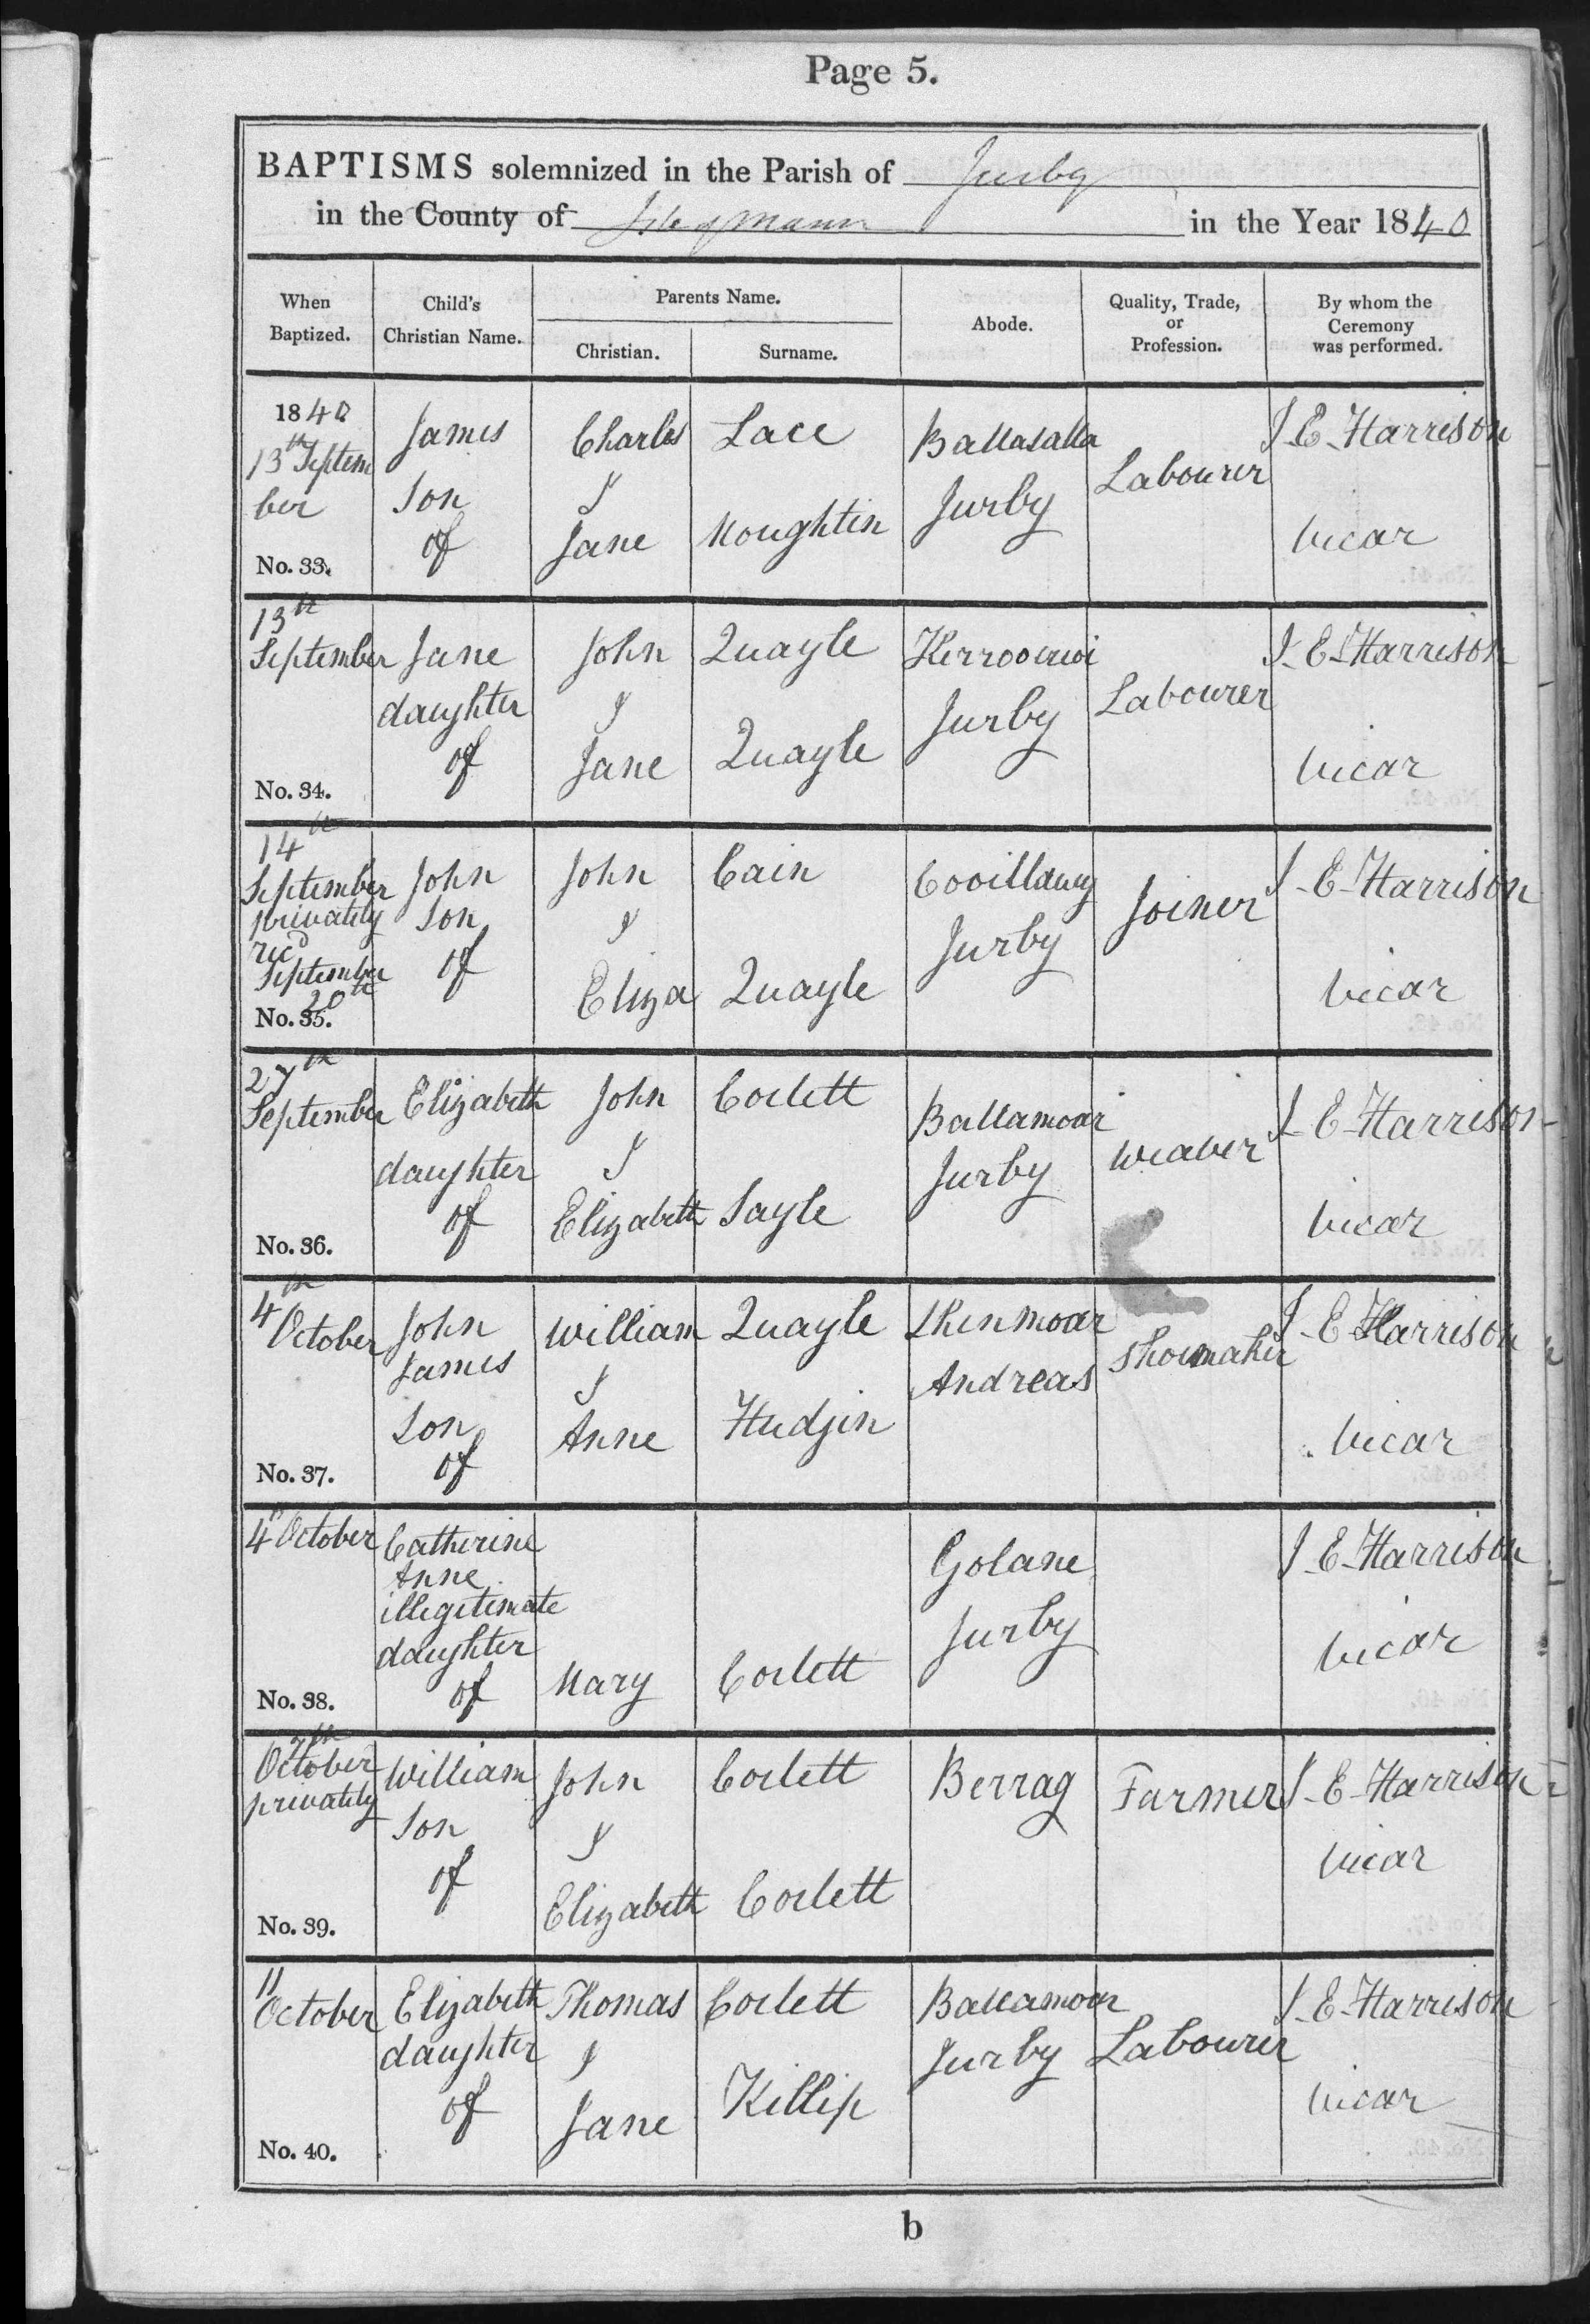 Page 5.
BAPTISMS solemnized in the Parish of Jurby
in the County of Isle of Mann in the Year 1840
When Baptized. Child's Christian Name. Parents Name. Christian. Surname. Abode. Quality, Trade, or Profession. By whom the Ceremony was performed.
1840 James Charles Lace Ballasalla J E Harrison
13th Septem Labourer
ber Son & Jurby
of Jane Moughtin Vicar
No. 33.
13th
September Jane John Quayle J E Harrison
daughter & Jurby Labourer
of Jane Quayle Vicar
No. 34.
14th
September John John Cain J E Harrison
privately Son & Joiner
recd of Jurby
September Eliza Quayle Vicar
20th
No. 35.
27th
September Elizabeth John Corlett Ballamoar J E Harrison
daughter & Jurby Weaver
of Elizabeth Sayle Vicar
No. 36.
4th
October John William Quayle J E Harrison
James & Andreas Shoemaker
Son Anne Vicar
of
No. 37.
4th October Catherine Golane J E Harrison
Anne
illegitimate Jurby
daughter Vicar
of Mary Corlett
No. 38.
7th
October William John Corlett Berrag Farmer J E Harrison
privately
Son & Vicar
of Elizabeth Corlett
No. 39.
11
October Elizabeth Thomas Corlett Ballamoar J E Harrison
daughter & Jurby Labourer
of Jane Killip Vicar
No. 40.
b